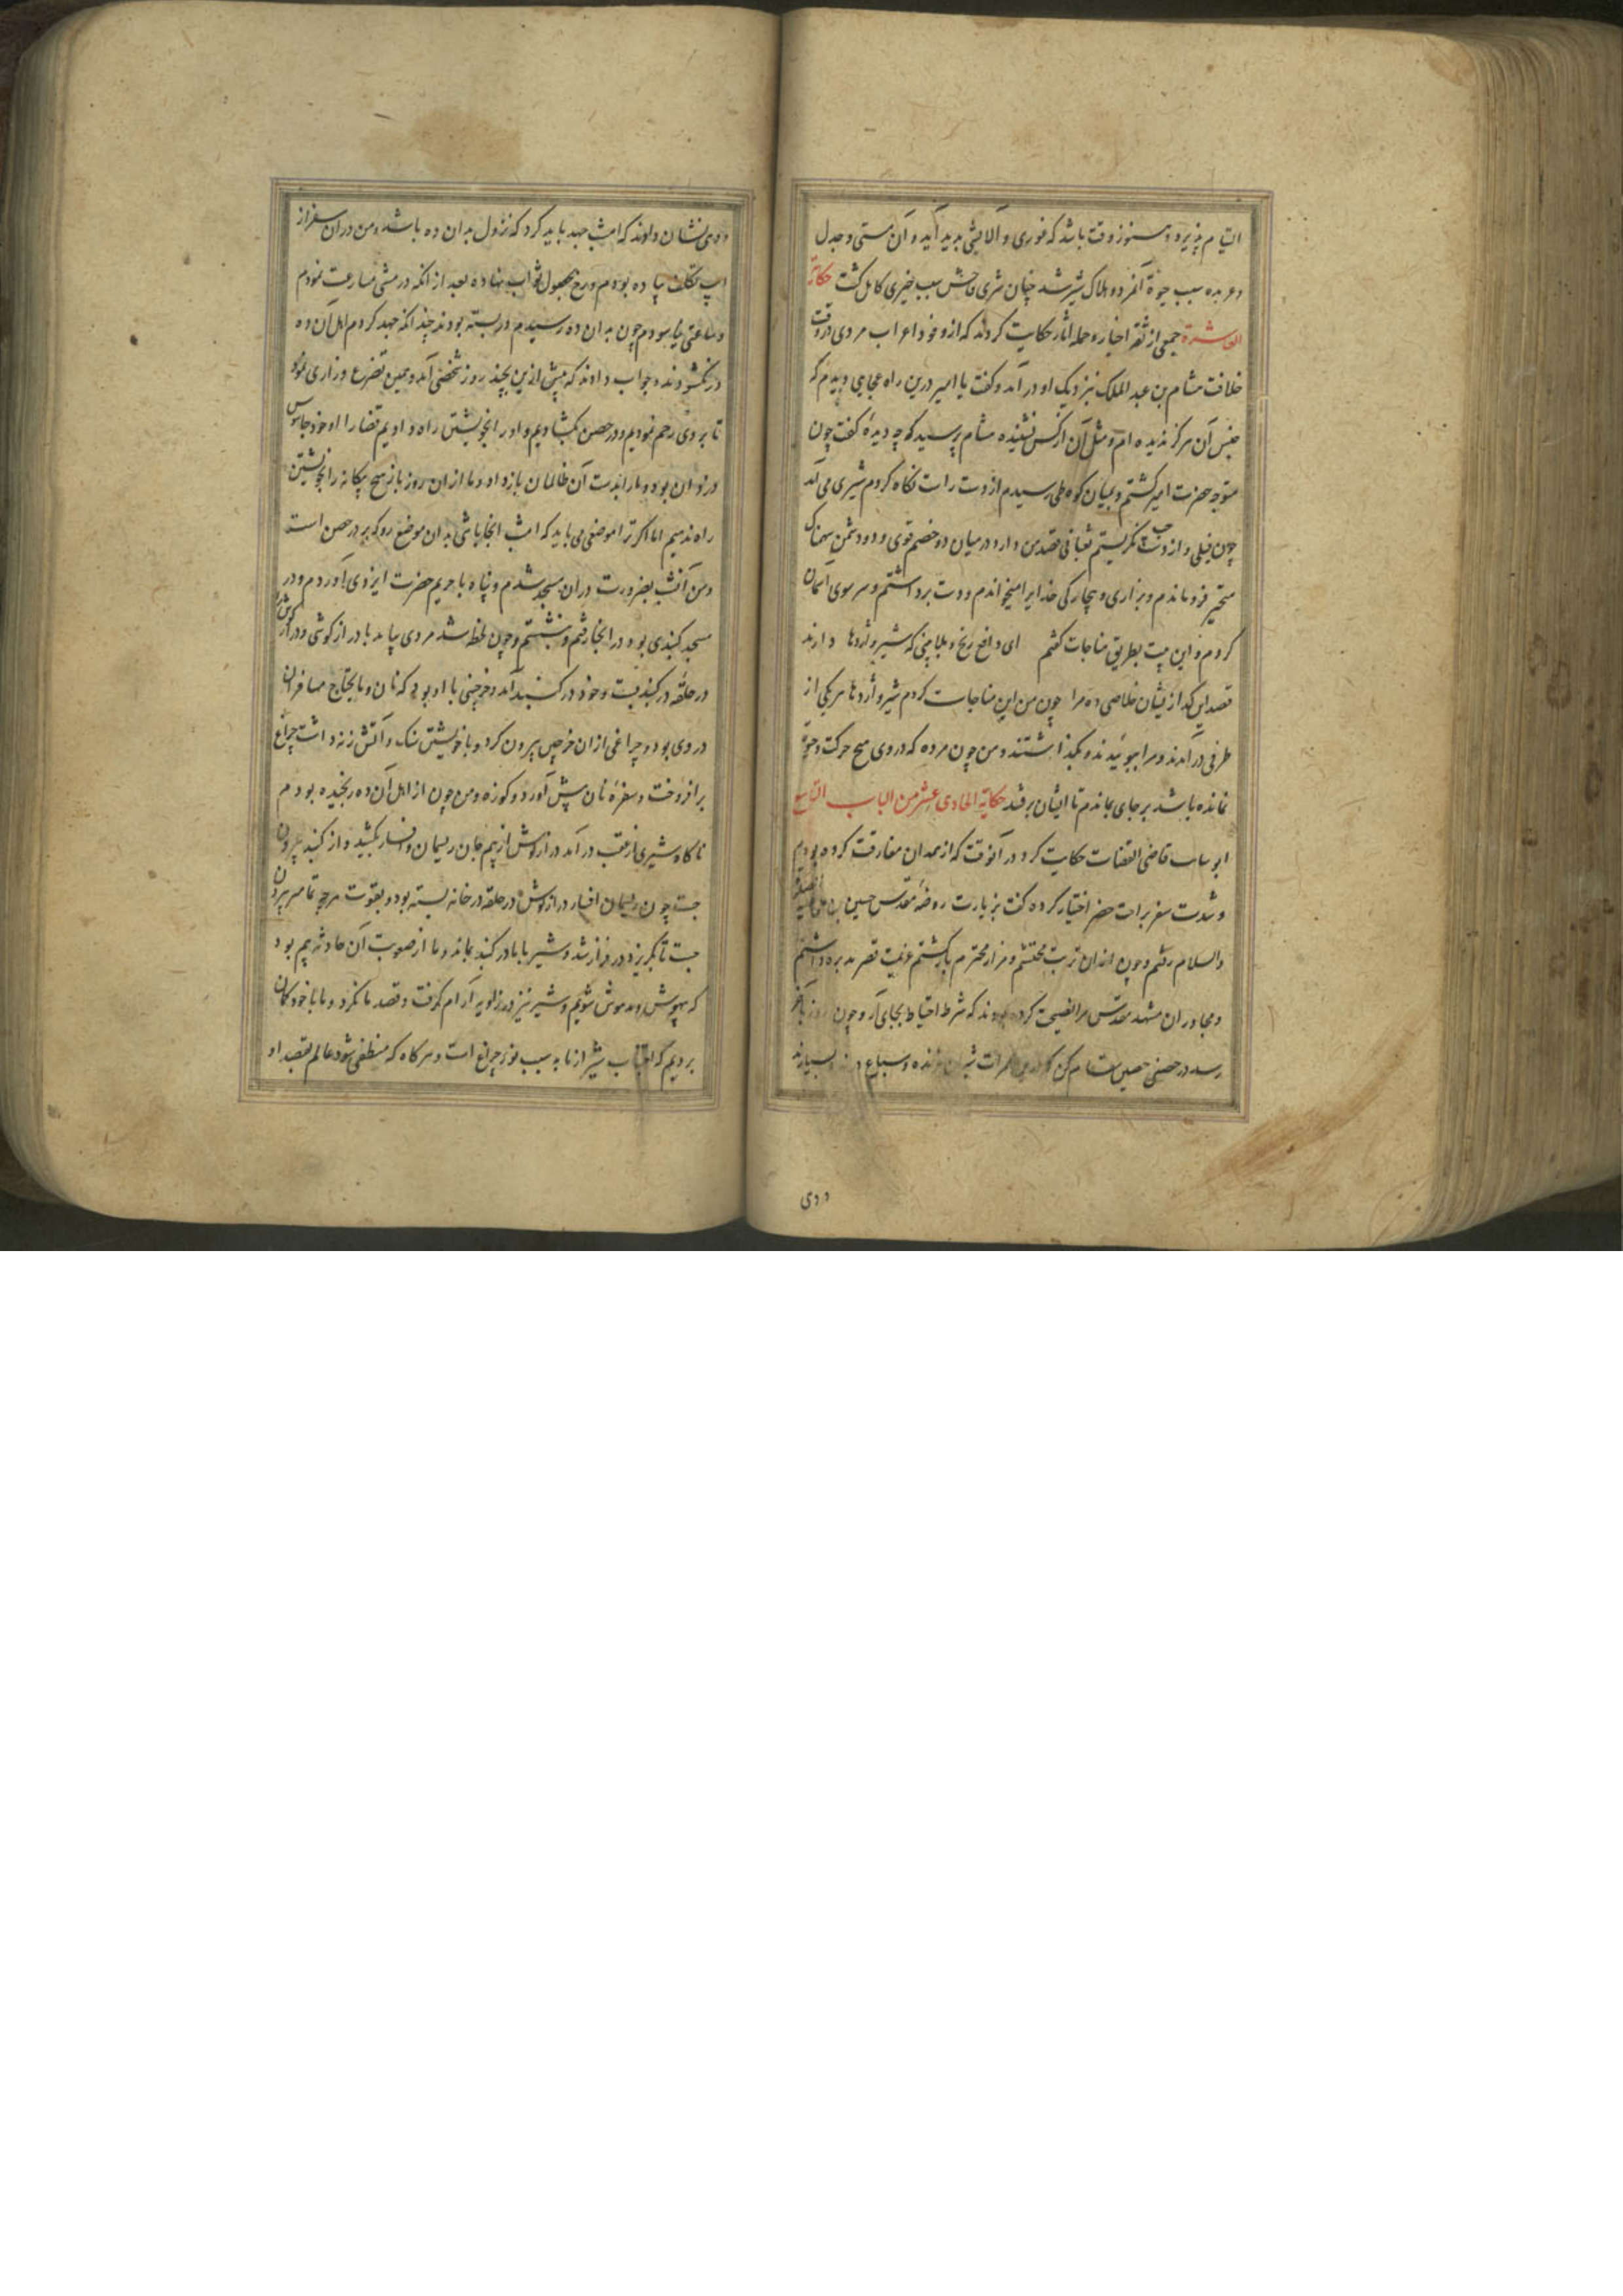 التیام پذیرد و هنوز وقت باشد که فوری و آلایشی پدید آید و آن مستی و جدل
و عربده سبب حیوة آنمرد و هلاک شیر شد چنان شری فاحش سبب خیری کامل گشت حکایة
العاشرة جمعی از ثقه اخبار و حمله آثار حکایت کردند که از وفود اعراب مردی در وقت
خلافت هشام بن عبد الملک بنزدیک او در آمد و گفت یا امیر درین راه عجایبی دیدم که
جنس آن هرگز ندیده ام و مثل آن از کس نشنیده هشام پرسید که چه دیده گفت چون
متوجه حضرت امیر گشتم و بمیان کوه طی رسیدم از دست راست نگاه کردم شیری می آمد
چون فیلی و از دست چپ نگریستم ثعبانی قصد من دارد در میان دو خصم قوی و دو دشمن سهمناک
متحیر فروماندم و بزاری و بیچارگی خدایرا میخواندم و دست برداشتم و سر سوی آسمان
کردم و این بیت بطریق مناجات گفتم ای دافع رنج و بلا بینی که شیر و اژدها دارند
قصد این گدا زیشان خلاصی ده مرا چون من این مناجات کردم شیر و اژدها هر یکی از
طرفی در آمدند و مرا ببوئیدند و بگذاشتند و من چون مرده که در وی هیچ حرکت و حیوة
نمانده باشد بر جای بماندم تا ایشان برفتند حکایة الحادی عشر من الباب التاسع
ابو ساب قاضی القضات حکایت کرد در آنوقت که از همدان مفارقت کرده بودم
و شدت سفر بر راحت حضر اختیار کرده گفت بزیارت روضه مقدس حسین بن علی علیه
والسلام رفتم و چون از ان تربت محتشم و مزار محترم بازگشتم عزیمت قصر هبیره داشتم
و مجاوران مشهد مقدس مرا نصیحت کرده بودند که شرط احتیاط بجای آر و چون روز بآخر
رسد در حصنی حصین مقام کن که درین شیران درنده و سباع بسیارند
ودی
ودهی نشان دادند که امشب جهد باید کرد که نزول بدان ده باشد و من در آن سفر از
اسپ تکلف پیاده بودم و رخ بحصول ثواب نهاده بعد از آنکه در مشی مسارعت نمودم
و ساعتی نیاسودم چون بدان ده رسیدم در بسته بودند چندانکه جهد کردم اهل آن ده
در نگشودند و جواب دادند که پیش ازین بچند روز شخصی آمد و همین تضرع و زاری نمود
تا بر وی رحم نمودیم و در حصن بگشادیم و او را بخویشتن راه دادیم قضا را او خود جاسوس
دزدان بود و ما را بدست آن ظالمان باز داد و ما از ان روز باز هیچ بیگانه را بخویشتن
راه ندهیم اما اگر ترا موضعی می باید که امشب آنجا باشی بدان موضع رو که بر در حصن است
و من آنشب بضرورت در ان مسجد شدم و پناه با حریم حضرت ایزدی آوردم و در
مسجد گنبدی بود در آنجا رفتم و بنشستم و چون لحظه شد مردی بیامد با دراز گوشی و دراز گوش را
در حلقه در گنبد بست و خود در گنبد آمد و خرجینی با او بود که نان و مایحتاج مسافران
در وی بود و چراغی از ان خرجین بیرون کرد و با خویشتن سنگ و آتش زنه داشت چراغ
برافروخت و سفره نان پیش آورد و کوزه و من چون از اهل آن ده رنجیده بودم
ناگاه شیری از عقب در آمد دراز گوش از بیم جان ریسمان و افسار بکشید و از گنبد بیرون
جست چون ریسمان افسار دراز گوش در حلقه در خانه بسته بود و بقوت هر چه تمامتر بیرون
جست تا بگریزد در فراز شد و شیر با ما در گنبد بماند و ما از صعوبت آن حادثه بیم بود
که بیهوش و مدهوش شویم و شیر نیز در زاویه آرام گرفت و قصد ما نکرد و ما با خود گمان
بردیم که اجتناب شیر از ما به سبب نور چراغ است و هرگاه که منطفی شود عالم بقصد او